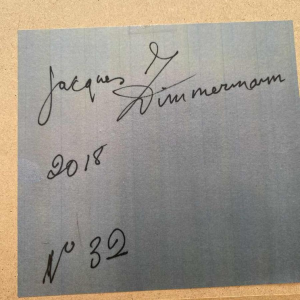 Jacques
Zimmermann
2018
N° 32